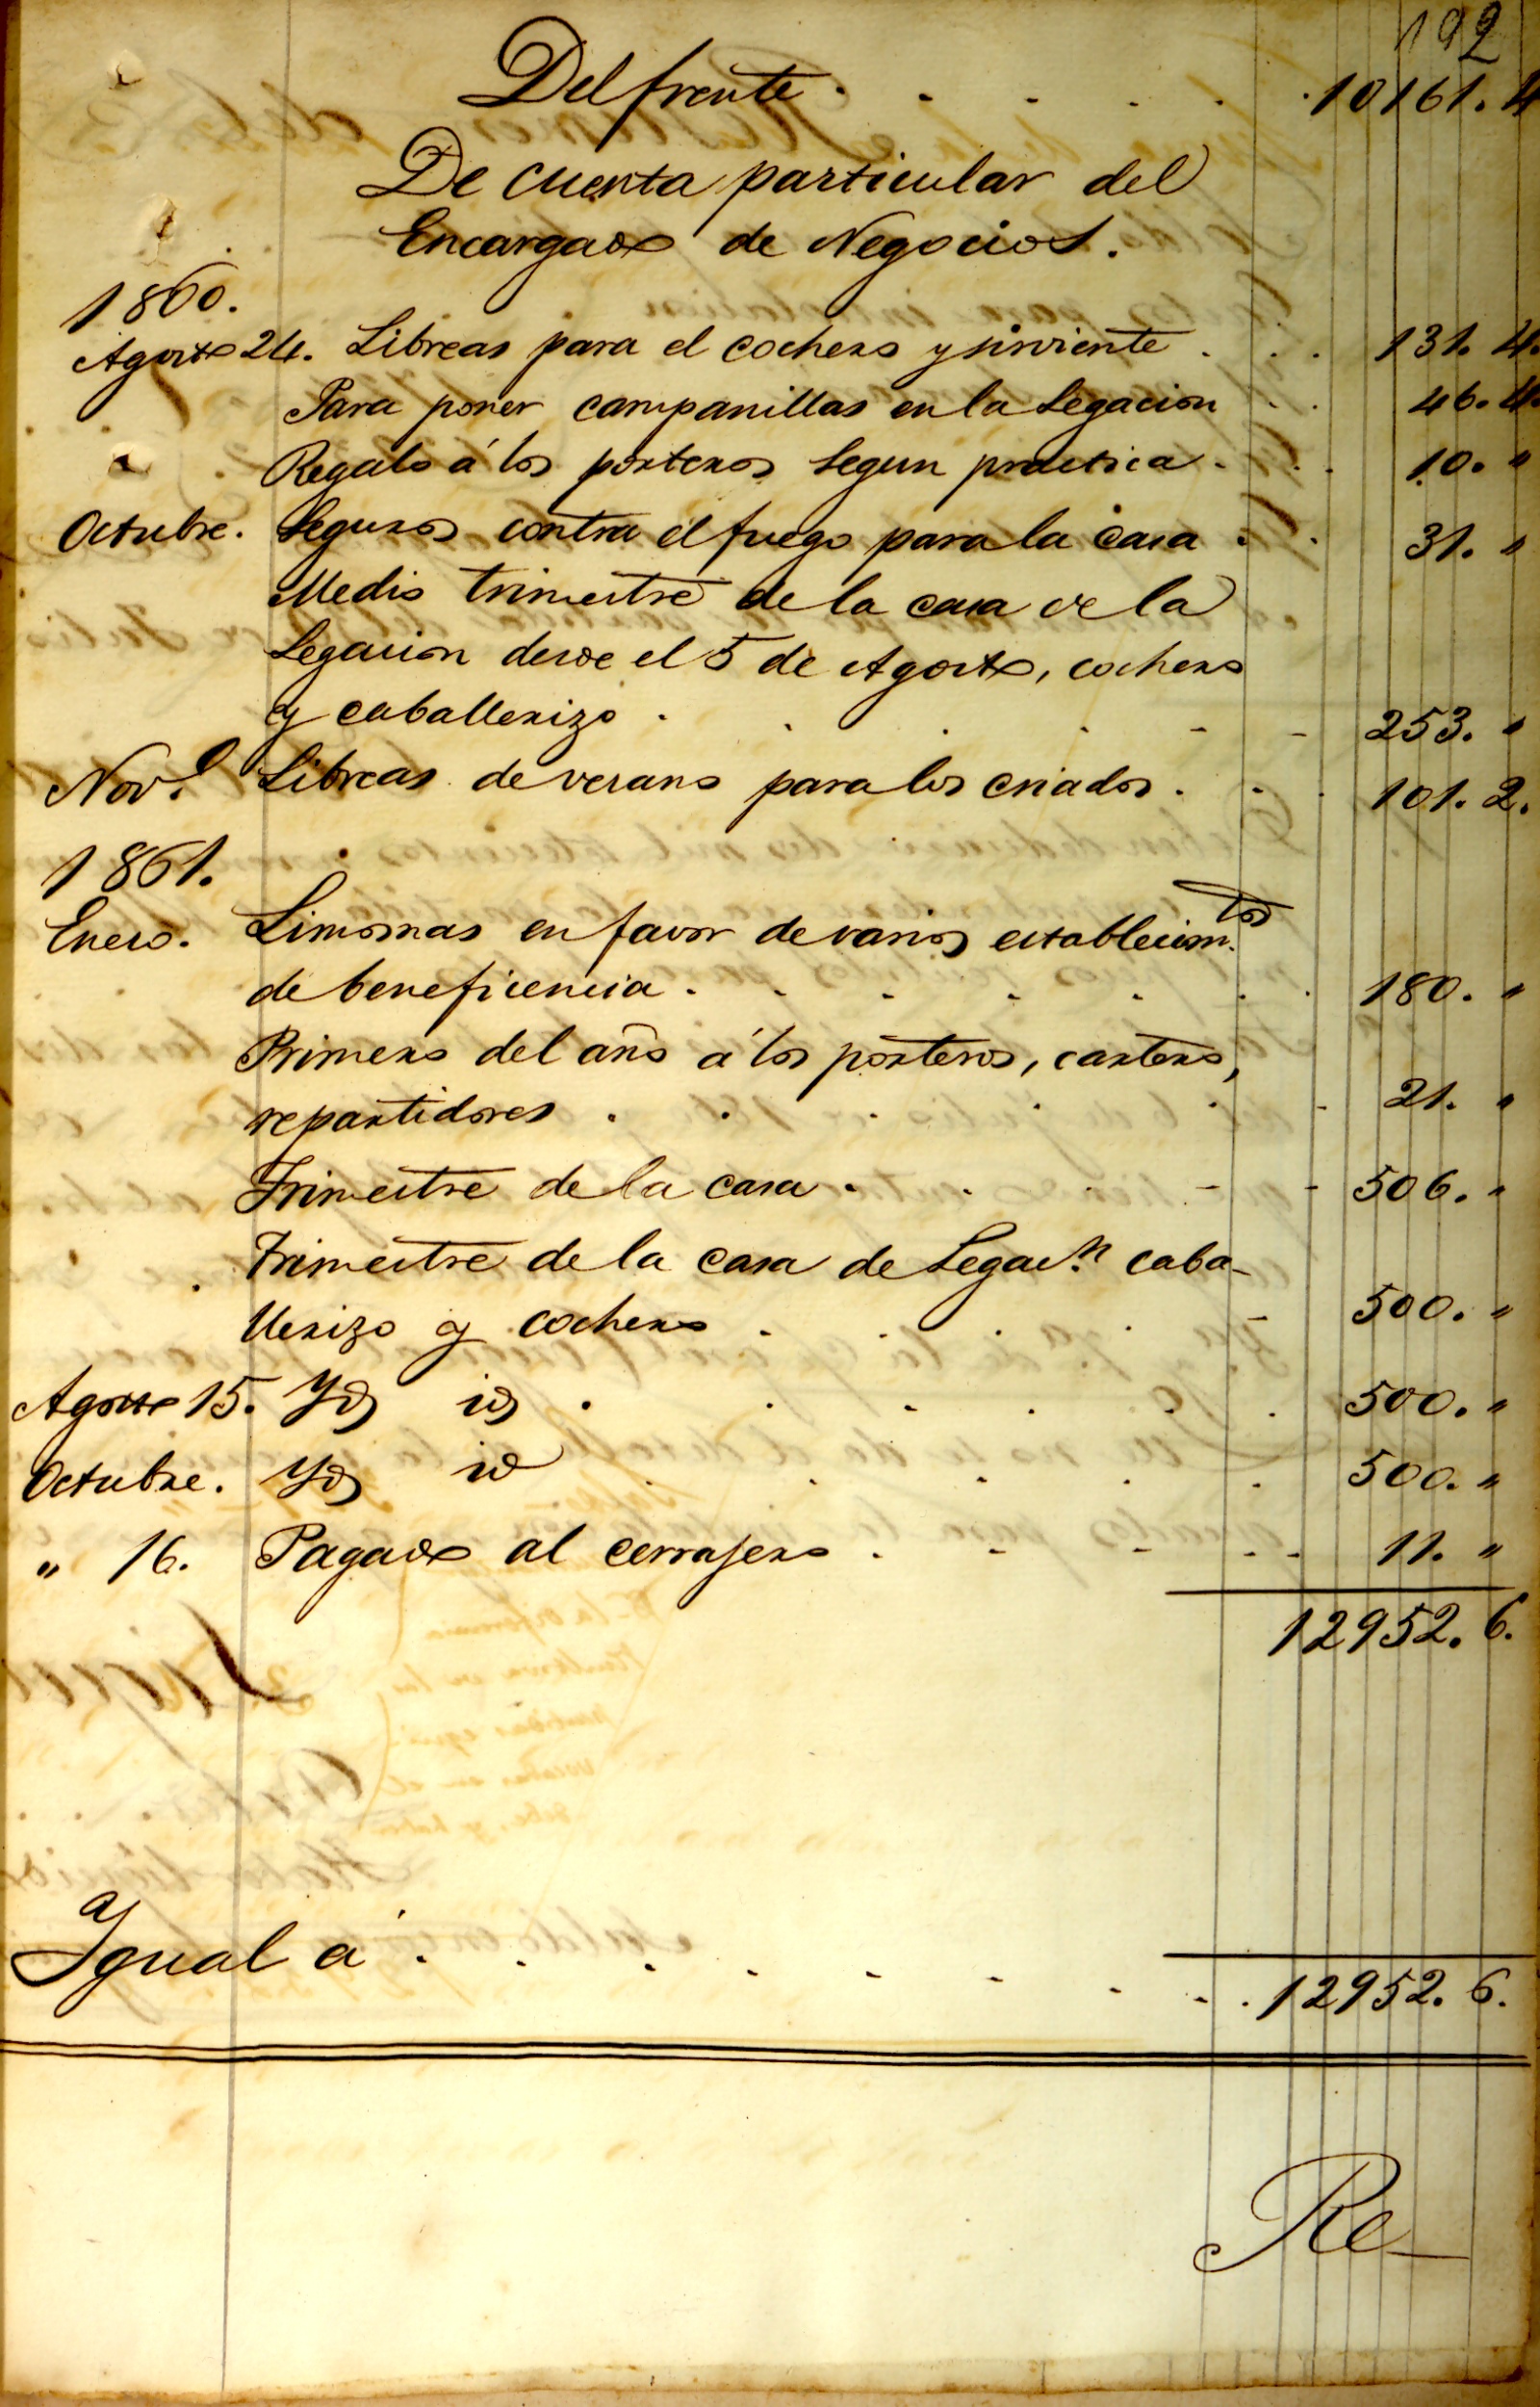 192
Del frente . . . . . 10161. 4
De cuenta particular del
Encargado de Negocios.
1860.
Agosto 24. Libreas para el cochero y sirviente . . . 131. 4.
Para poner campanillas en la Legacion . . 46. 4.
Regalo á los porteros segun practica . . . 10. "
Octubre. Seguros contra el fuego para la casa . . 31. "
Medio trimestre de la casa de la
Legacion desde el 5 de Agosto, cochero
y caballerizo . . . . - - 253. "
Nov.e Libreas de verano para los criados . . . 101. 2.
1861.
Enero. Limosnas en favor de varios establecim.tos
de beneficencia . . . . . . . 180. "
Primero del año á los porteros, cartero,
repartidores . . . . . - 21. "
Trimestre de la casa . . . - - 506. "
Trimestre de la casa de Legac.n caba-
llerizo y cochero . . . . - 500. "
Agosto 15. Yd id . . . . . . 500. "
Octubre. Yd id . . . . . 500. "
" 16. Pagado al cerrajero . - - - - 11. "
12952. 6.
Ygual á . . . . . . . . . 12952. 6.
Re-